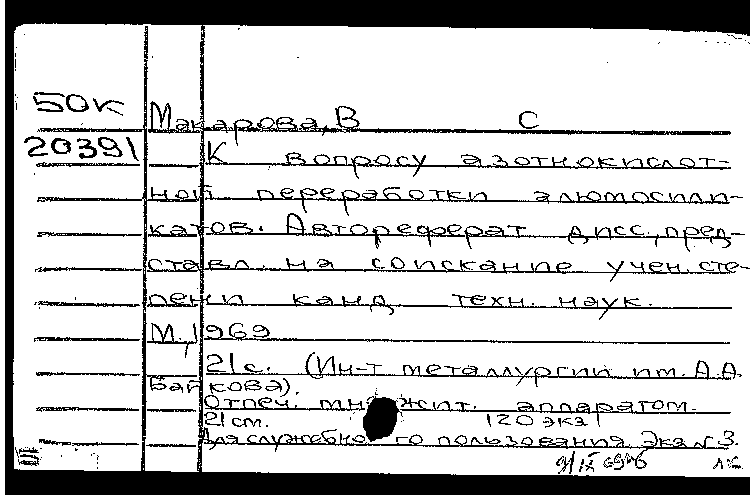 50к Макарова, В С
20391 К вопросу азотнокислот-
ной переработки алюмосили-
катов. Автореферат дисс., пред-
ставл. на соискание учен. сте-
пени канд. техн. наук.
М., 1969
21 с. (Ин-т металлургии им. А.А.
Байкова).
Отпеч. множит. аппаратом.
21 см. 120 экз
Для служебного пользования. Экз № 3.
9/IX 69